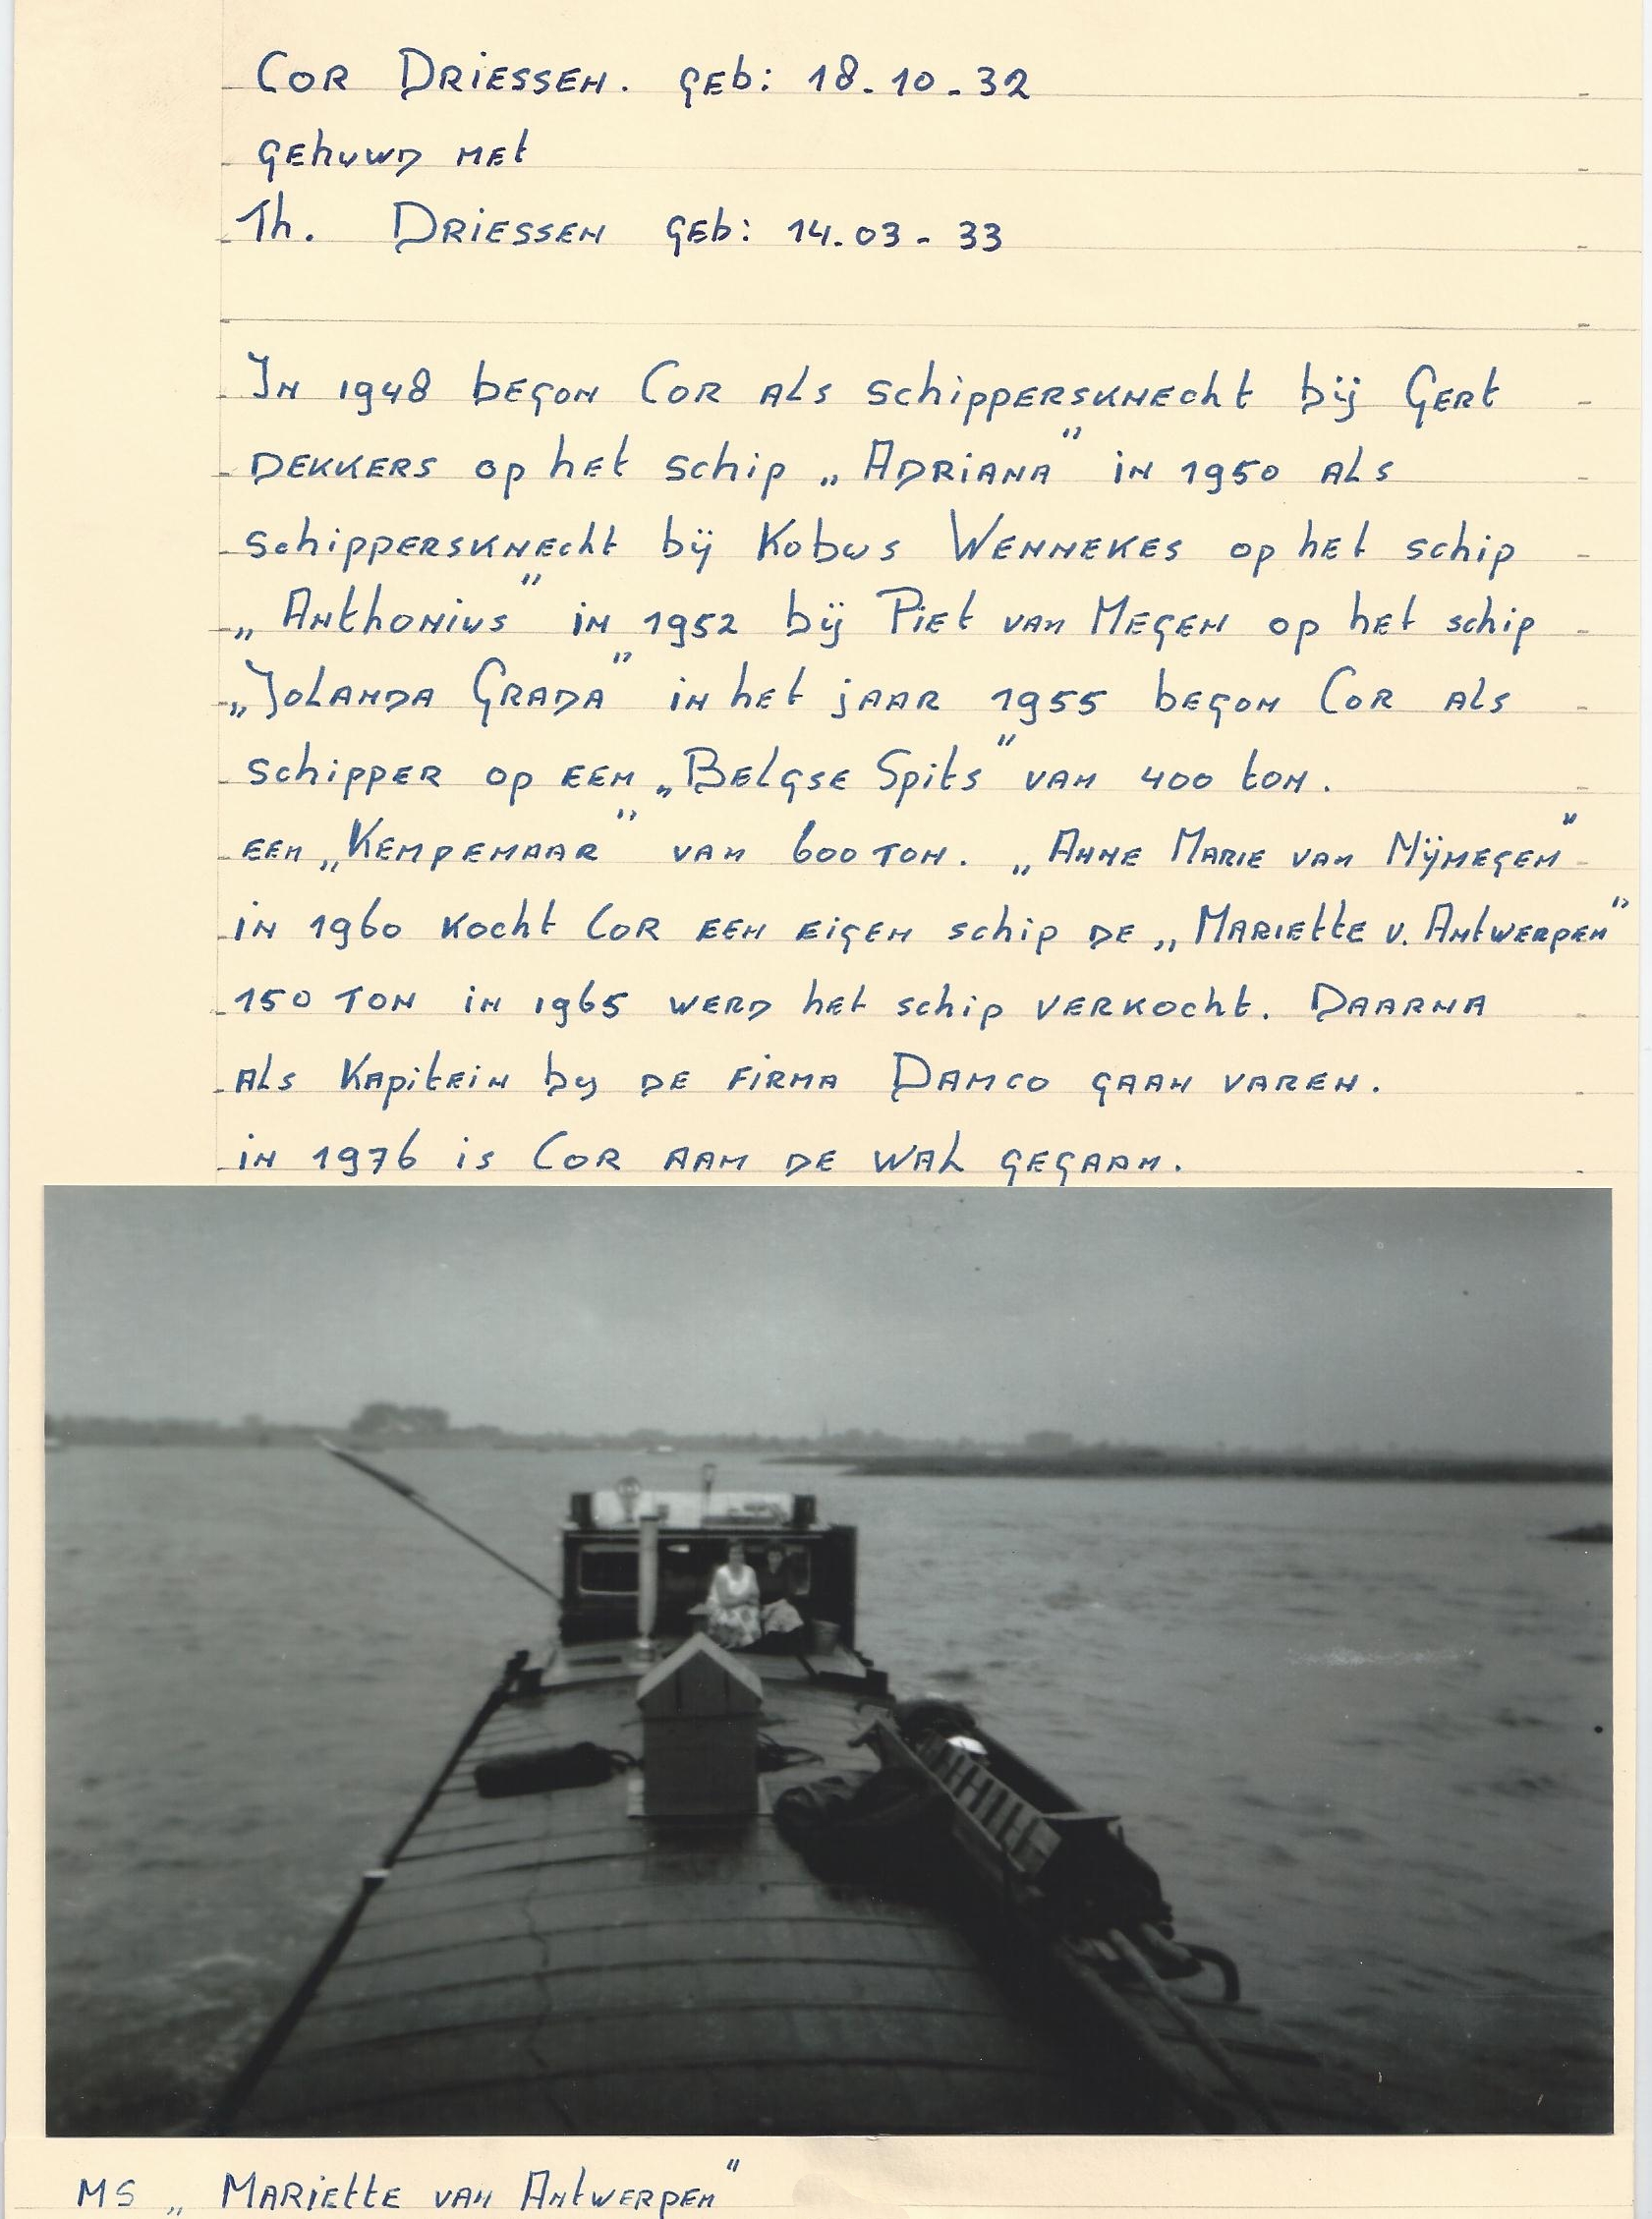 Cor Driessen. geb: 18-10-32
gehuwd met
Th. Driessen geb: 14.03-33
In 1948 begon Cor als schippersknecht bij Gert
Dekkers op het schip „Adriana” in 1950 als
schippersknecht bij Kobus Wennekes op het schip
„Anthonius” in 1952 bij Piet van Megen op het schip
„Jolanda Grada” in het jaar 1955 begon Cor als
schipper op een „Belgse Spits” van 400 ton.
een „Kempenaar” van 600 ton. „Anne Marie van Nijmegen”
in 1960 kocht Cor een eigen schip de „Mariette v. Antwerpen”
150 ton in 1965 werd het schip verkocht. Daarna
als Kapitein by de firma Damco gaan varen.
in 1976 is Cor aan de wal gegaan.
MS „Mariette van Antwerpen”